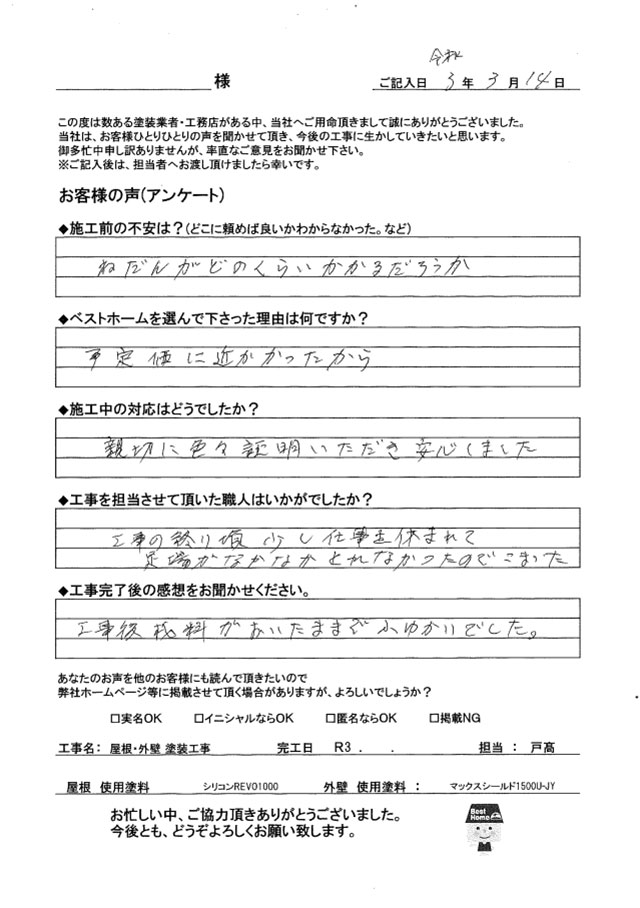 令和
様 ご記入日 3年 3月 14日
この度は数ある塗装業者・工務店がある中、当社へご用命頂きまして誠にありがとうございました。
当社は、お客様ひとりひとりの声を聞かせて頂き、今後の工事に生かしていきたいと思います。
御多忙中申し訳ありませんが、率直なご意見をお聞かせ下さい。
※ご記入後は、担当者へお渡し頂けましたら幸いです。
お客様の声(アンケート)
◆施工前の不安は?(どこに頼めば良いかわからなかった。など)
ねだんがどのくらいかかるだろうか
◆ベストホームを選んで下さった理由は何ですか?
予定価に近かかったから
◆施工中の対応はどうでしたか?
親切に色々説明いただき安心しました
◆工事を担当させて頂いた職人はいかがでしたか?
工事の終り頃少し仕事を休まれて
足場がなかなかとれなかったのでこまった
◆工事完了後の感想をお聞かせください。
工事後材料がおいたままでふゆかいでした。
あなたのお声を他のお客様にも読んで頂きたいので
弊社ホームページ等に掲載させて頂く場合がありますが、よろしいでしょうか?
□実名OK □イニシャルならOK □匿名ならOK □掲載NG
工事名: 屋根・外壁 塗装工事 完工日 R3 . . 担当 : 戸髙
屋根 使用塗料 シリコンREVO1000 外壁 使用塗料 : マックスシールド1500U-JY
お忙しい中、ご協力頂きありがとうございました。
今後とも、どうぞよろしくお願い致します。
Best
Home